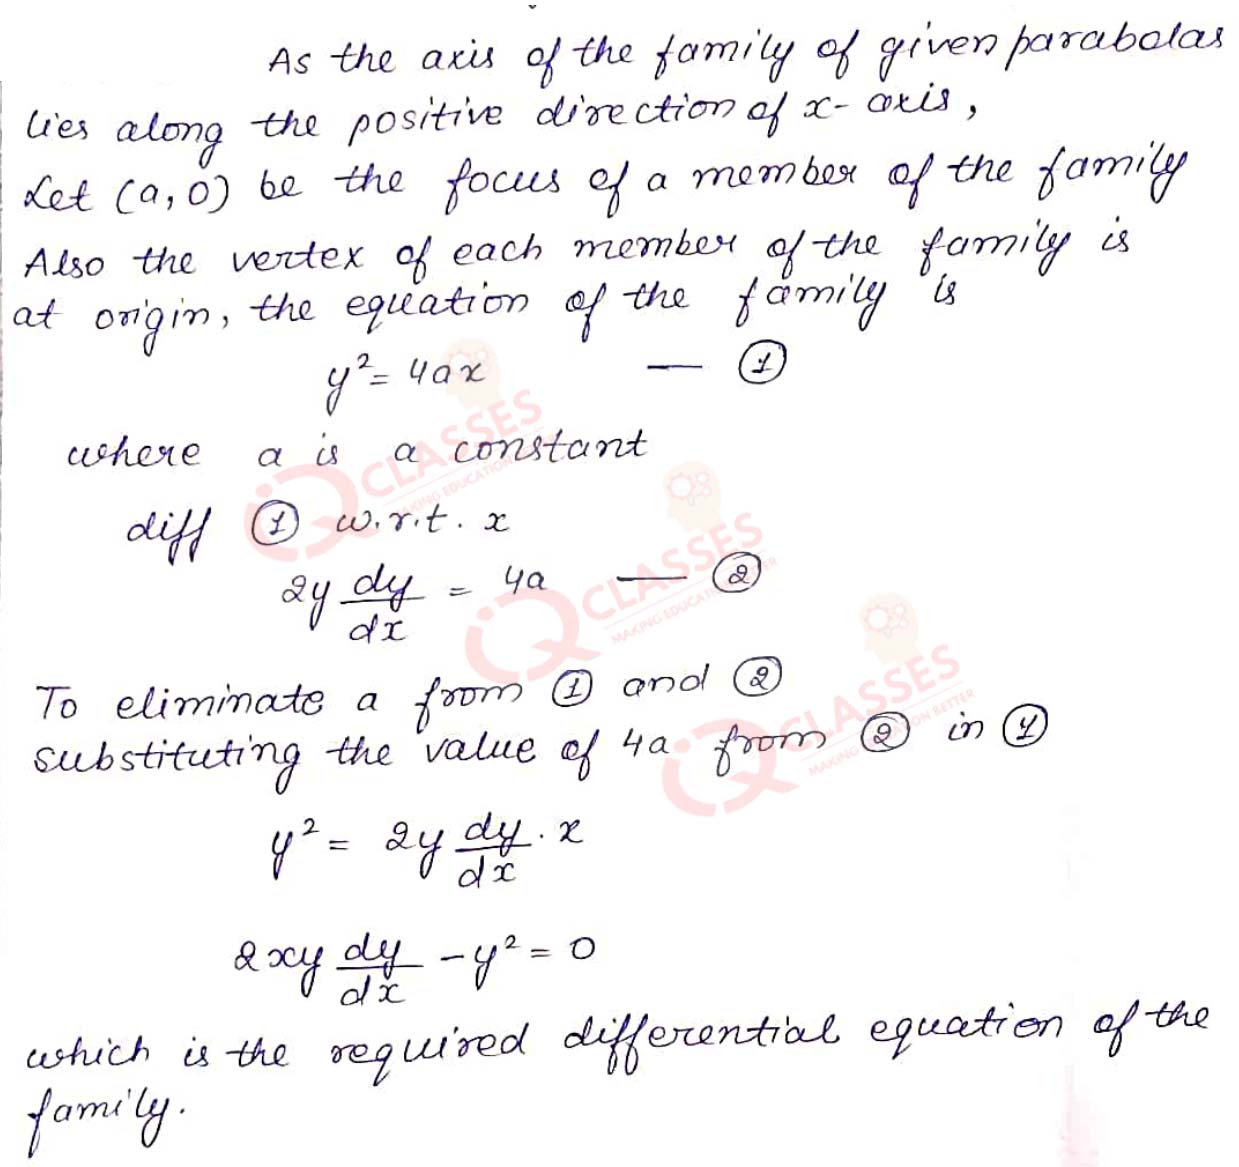 As the axis of the family of given parabolas
lies along the positive direction of x-axis,
Let (a, 0) be the focus of a member of the family
Also the vertex of each member of the family is
at origin, the equation of the family is
y² = 4ax — ①
where a is a constant
diff ① w.r.t. x
2y dy/dx = 4a — ②
To eliminate a from ① and ②
substituting the value of 4a from ② in ①
y² = 2y dy/dx · x
2xy dy/dx - y² = 0
which is the required differential equation of the
family.
iQ CLASSES
MAKING EDUCATION BETTER
iQ CLASSES
MAKING EDUCATION BETTER
iQ CLASSES
MAKING EDUCATION BETTER